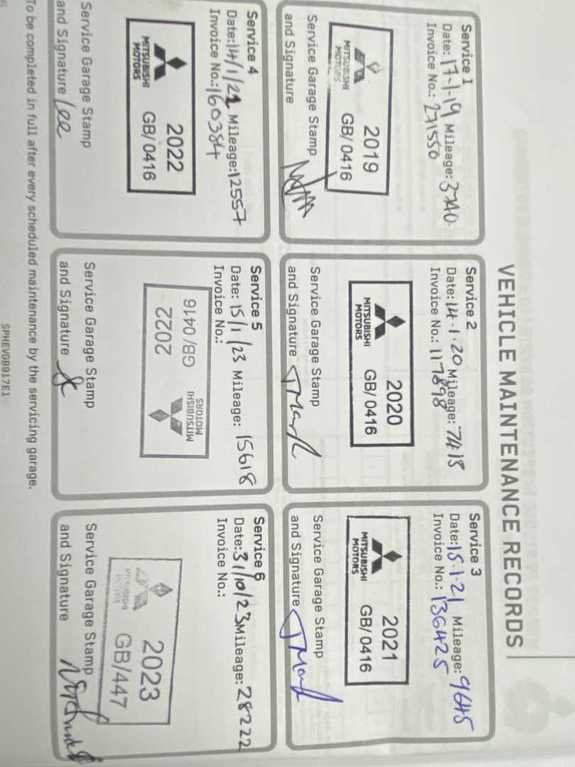 VEHICLE MAINTENANCE RECORDS
Service 1
Date: 17-1-19 Mileage: 3740
Invoice No.: 271550
2019
GB/0416
MITSUBISHI
MOTORS
Service Garage Stamp
and Signature
Service 2
Date: 14.1.20 Mileage: 7418
Invoice No.: 117898
2020
GB/0416
MITSUBISHI
MOTORS
Service Garage Stamp
and Signature
Service 3
Date: 15.1.21 Mileage: 9645
Invoice No.: 136425
2021
GB/0416
MITSUBISHI
MOTORS
Service Garage Stamp
and Signature
Service 4
Date: 14/1/22 Mileage: 12557
Invoice No.: 160384
2022
GB/0416
MITSUBISHI
MOTORS
Service Garage Stamp
and Signature Lee
Service 5
Date: 15/1/23 Mileage: 15618
Invoice No.:
MITSUBISHI
MOTORS
GB/0416
2022
Service Garage Stamp
and Signature
Service 6
Date: 31/10/23 Mileage: 28222
Invoice No.:
2023
GB/447
MITSUBISHI
MOTORS
Service Garage Stamp
and Signature
To be completed in full after every scheduled maintenance by the servicing garage.
SPHEVGB917E1